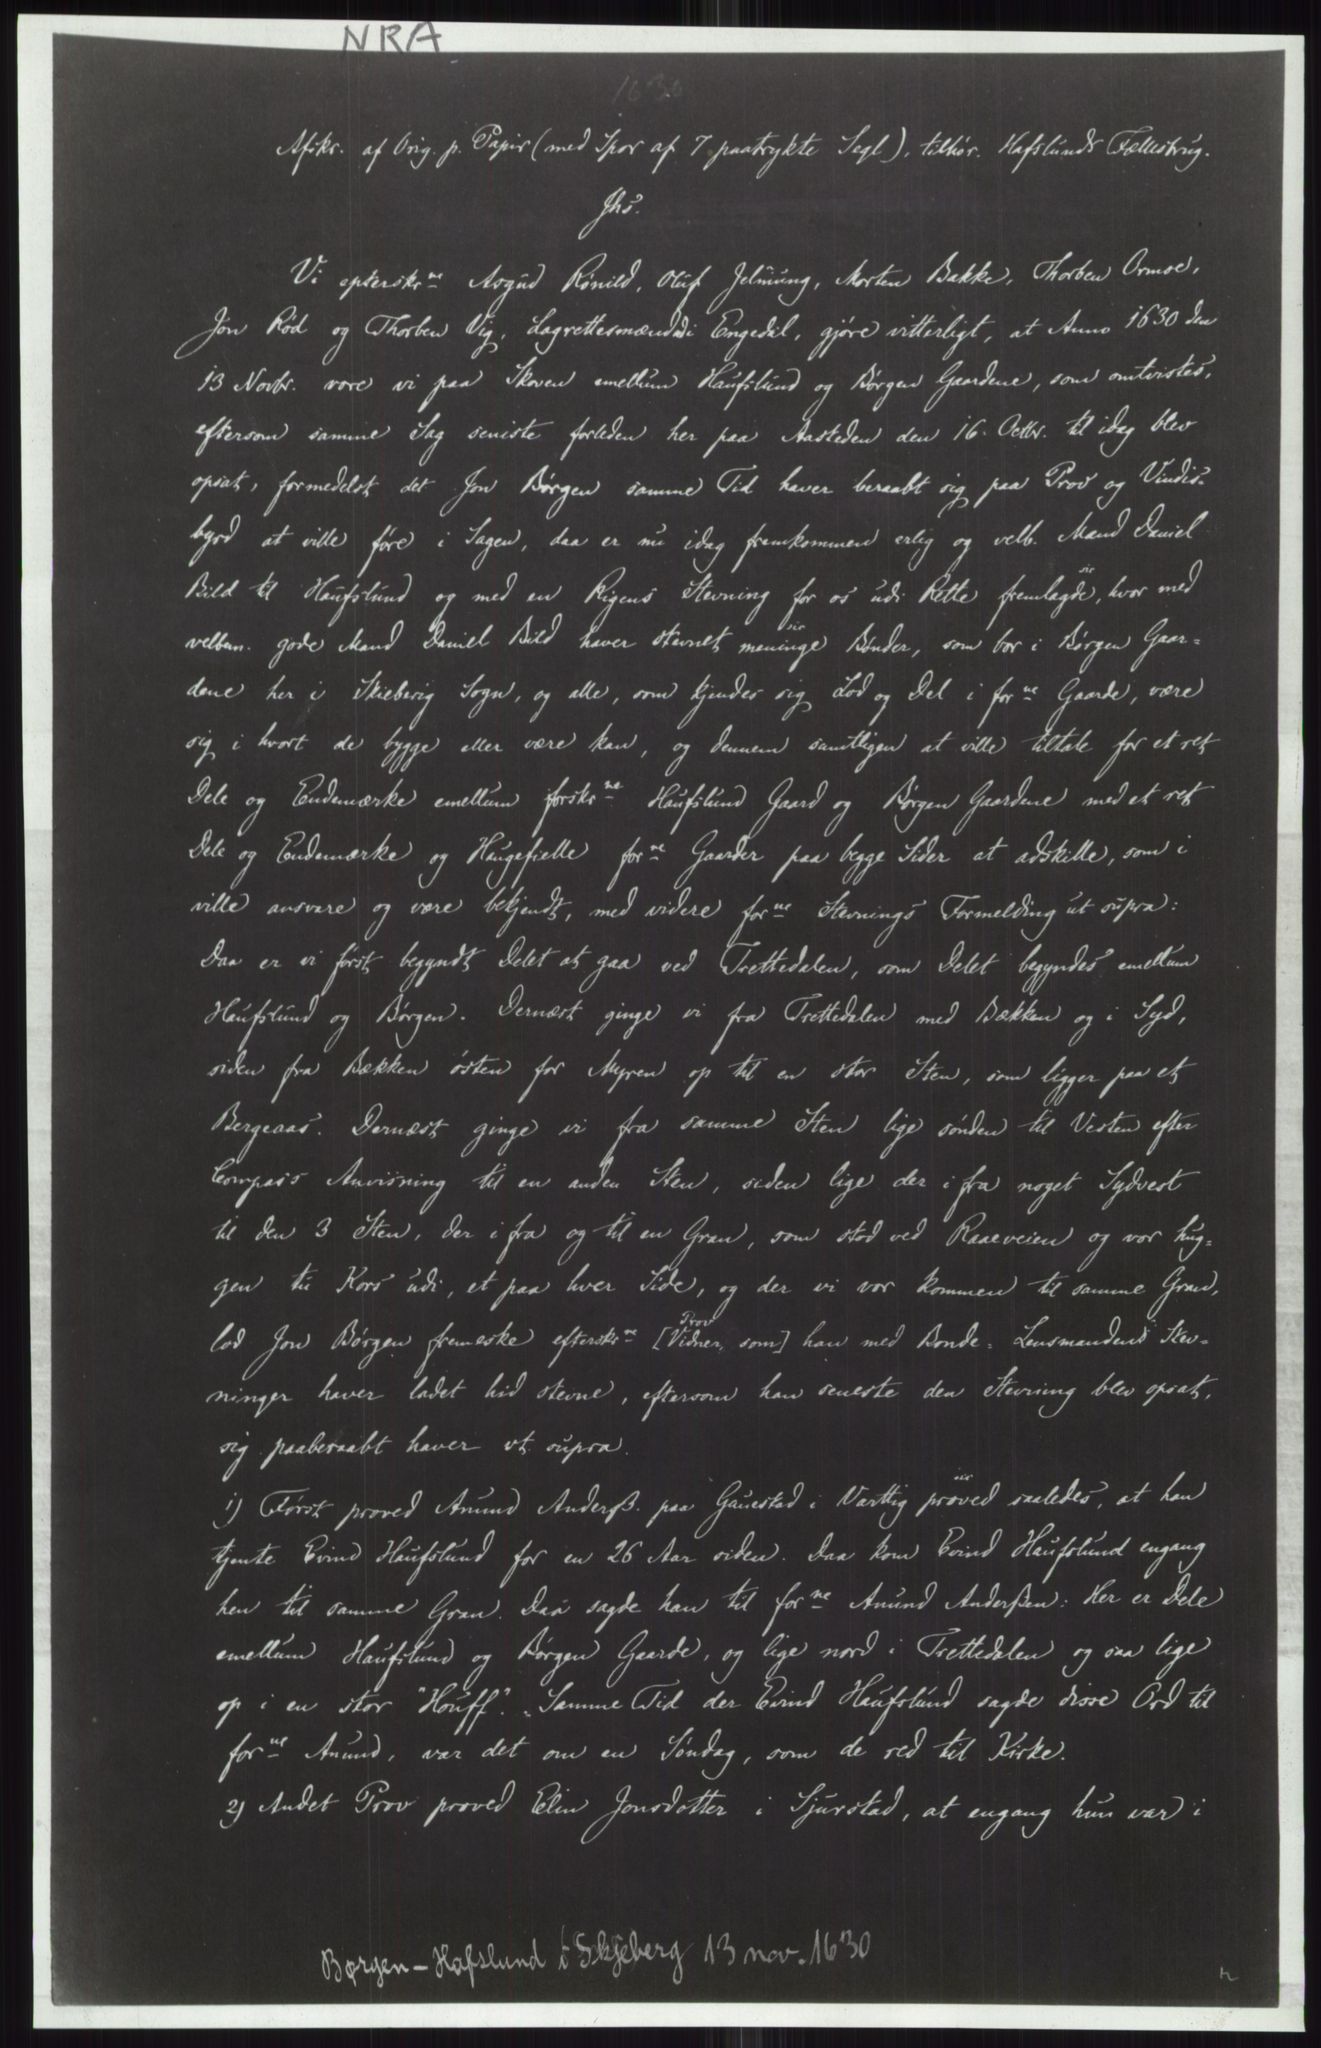 NRA
1630
Afskr. af Orig. p. Papir (med Spor af 7 paatrykte Segl), tilhör. Hafslunds Fællesbrug.
Jhs.
Vi eptersksne Asgud Rönild, Oluf Jelmung, Morten Bakke, Thorben Ormoe,
Jon Röd og Thorben Vig, Lagrettesmænd i Engedal, gjöre vitterligt, at Anno 1630 den
13 Novbr. vore vi paa Skoven emellum Haufslund og Börgen Gaardene, som omtvistes,
eftersom samme Sag seniste forleden her paa Aasteden den 16. Octbr. til idag blev
opsat, formedelst det Jon Börgen samme Tid haver beraabt sig paa Prov og Vindis-
byrd at ville före i Sagen, daa er nu idag fremkommen erlig og velb. Mand Daniel
Bild til Haufslund og med en Rigens Stevning for os udi Rette fremlagde, hvor med
sic
velben. gode Mand Daniel Bild haver stevnet meninge Bönder, som bor i Börgen Gaar=
sic
dene her i Skieberig Sogn, og alle, som kjendes sig Lod og Del i forne Gaarde, være
sig i hvort de bygge eller være kan, og dennem samtligen at ville tiltale for et ret
Dele og Endemærke emellum forskrne Haufslund Gaard og Börgen Gaardene med et ret
Dele og Endemærke og Haugefielle forne Gaarder paa begge Sider at adskille, som i
ville ansvare og være bekjendt, med videre forne Stevnings Formelding ut supra:
Daa er vi först begyndt Delet at gaa ved Trettedalen, som Delet begyndes emellum
Haufslund og Börgen. Dernæst ginge vi fra Trettedalen med Bækken og i Syd,
siden fra Bækken östen for Myren op til en stor Sten, som ligger paa et
Bergeaas. Dernæst ginge vi fra samme Sten lige sönden til Vesten efter
Compas's Anvisning til en anden Sten, siden lige der ifra noget Sydvest
til den 3 Sten, der ifra og til en Gran, som stod ved Raaeveien og vor hug=
gen tu Kors udi, et paa hver Side, og der vi vor kommen til samme Gran,
lod Jon Börgen fremeske efterskrne [Vidner, som] han med Bonde-Lensmandens Stev=
Prov
ninger haver ladet hid stevne, eftersom han seneste den Stevning blev opsat,
sig paaberaabt haver ut supra.
1) Först proved Anund Anderß. paa Gauestad i Varttig pröved saaledes, at han
sic
tjente Evind Haufslund for en 26 Aar siden. Daa kom Evind Haufslund engang
hen til samme Gran. Daa sagde han til forne Anund Anderßen: Her er Dele
emellum Haufslund og Börgen Gaarde, og lige nord i Trettedalen og saa lige
op i en stor "Houff". Samme Tid der Evind Haufslund sagde disse Ord til
forne Anund, var det om en Söndag, som de red til Kirke.
2) Andet Prov proved Elin Jonsdotter i Sjurstad, at engang hun var i
Børgen – Hafslund i Skjeberg 13 nov. 1630